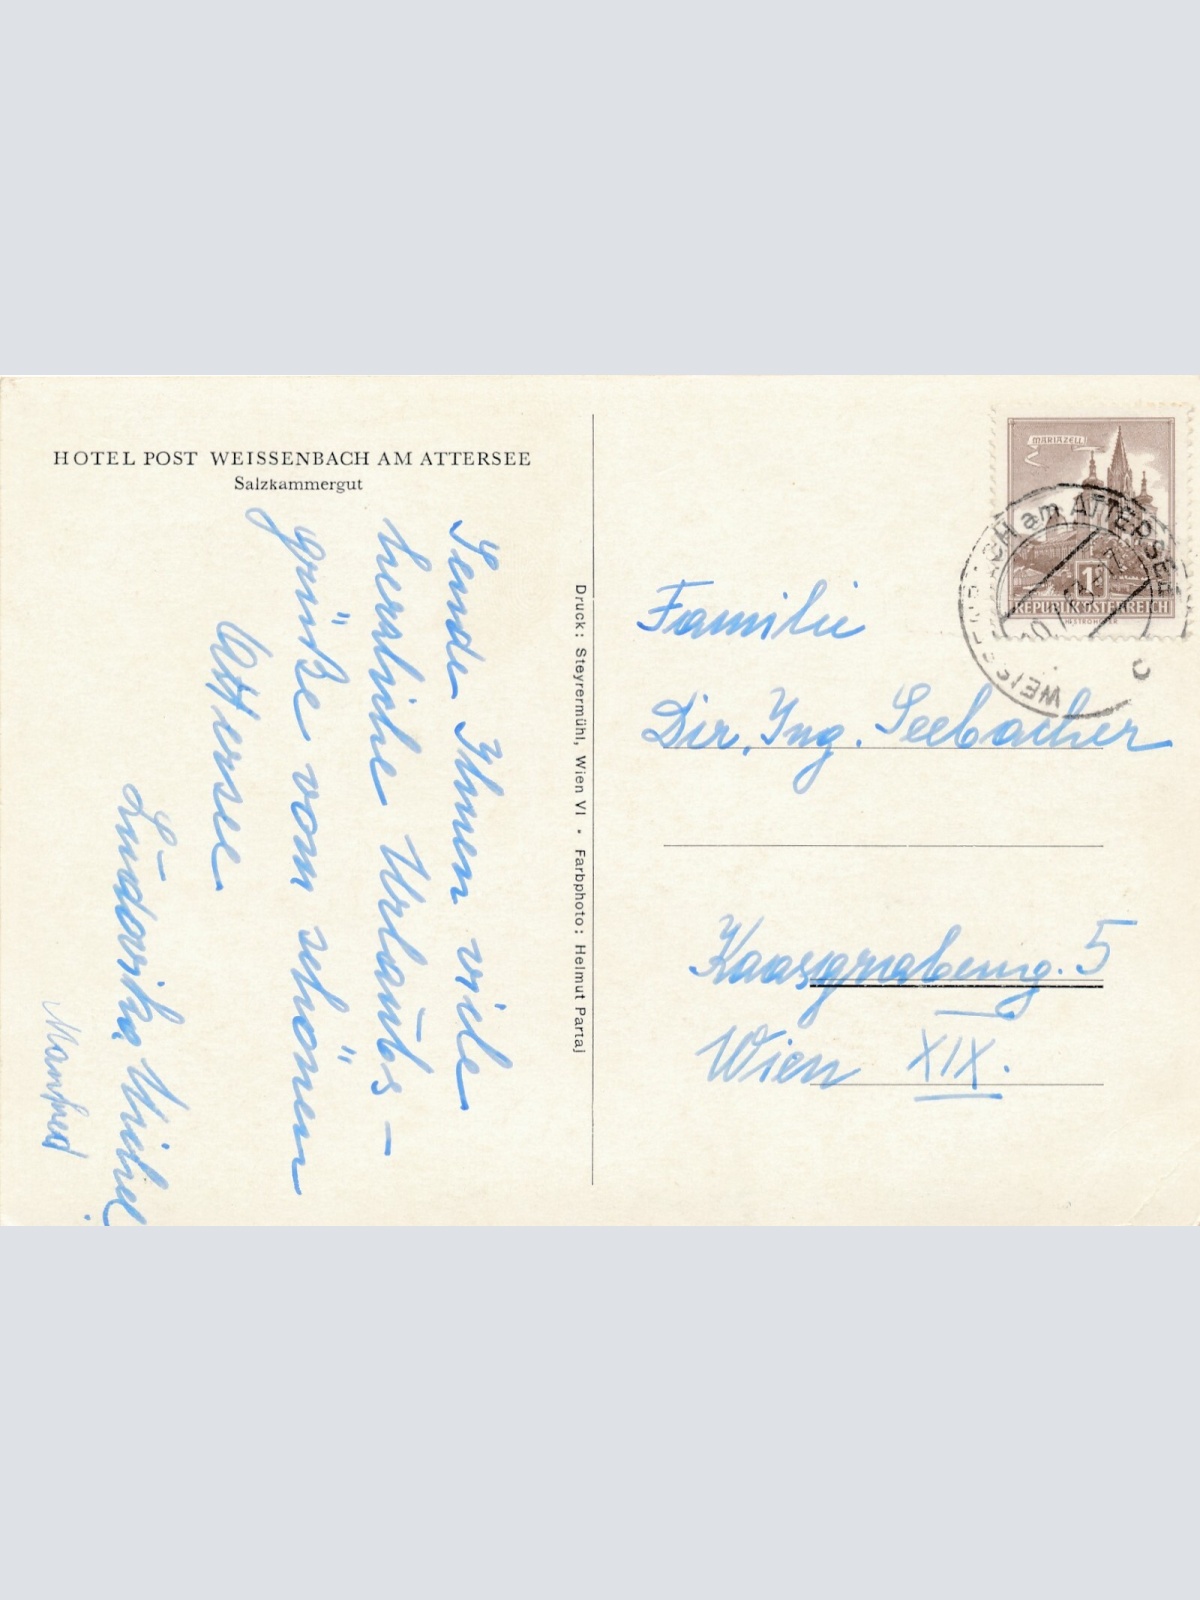 HOTEL POST WEISSENBACH AM ATTERSEE
Salzkammergut
Sende Ihnen viele
herrliche Urlaubs-
grüße vom schönen
Attersee
Ludovika Michel
Manfred
Druck: Steyrermühl, Wien VI • Farbphoto: Helmut Partaj
MARIAZELL
1S
REPUBLIK ÖSTERREICH
WEISSENBACH am ATTERSEE
Familie
Dir. Ing. Seebacher
Kaasgrabeng. 5
Wien XIX.